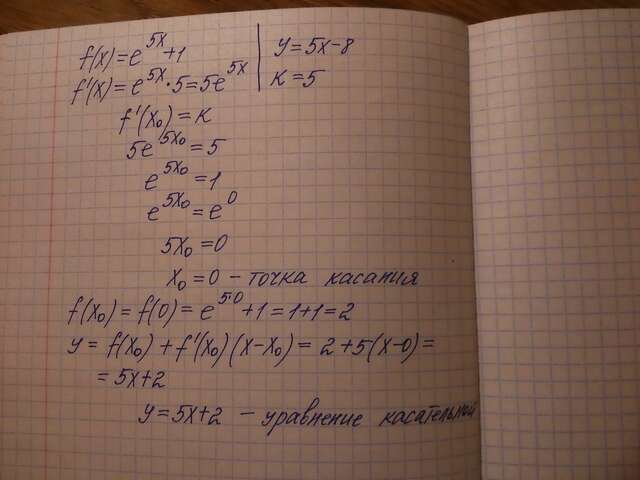 f(x)=e^{5x}+1 | y=5x-8
f'(x)=e^{5x}·5=5e^{5x} | к=5
f'(x₀)=к
5e^{5x₀}=5
e^{5x₀}=1
e^{5x₀}=e^0
5x₀=0
x₀=0 – точка касания
f(x₀)=f(0)=e^{5·0}+1=1+1=2
y=f(x₀)+f'(x₀)(x-x₀)=2+5(x-0)=
=5x+2
y=5x+2 – уравнение касательной